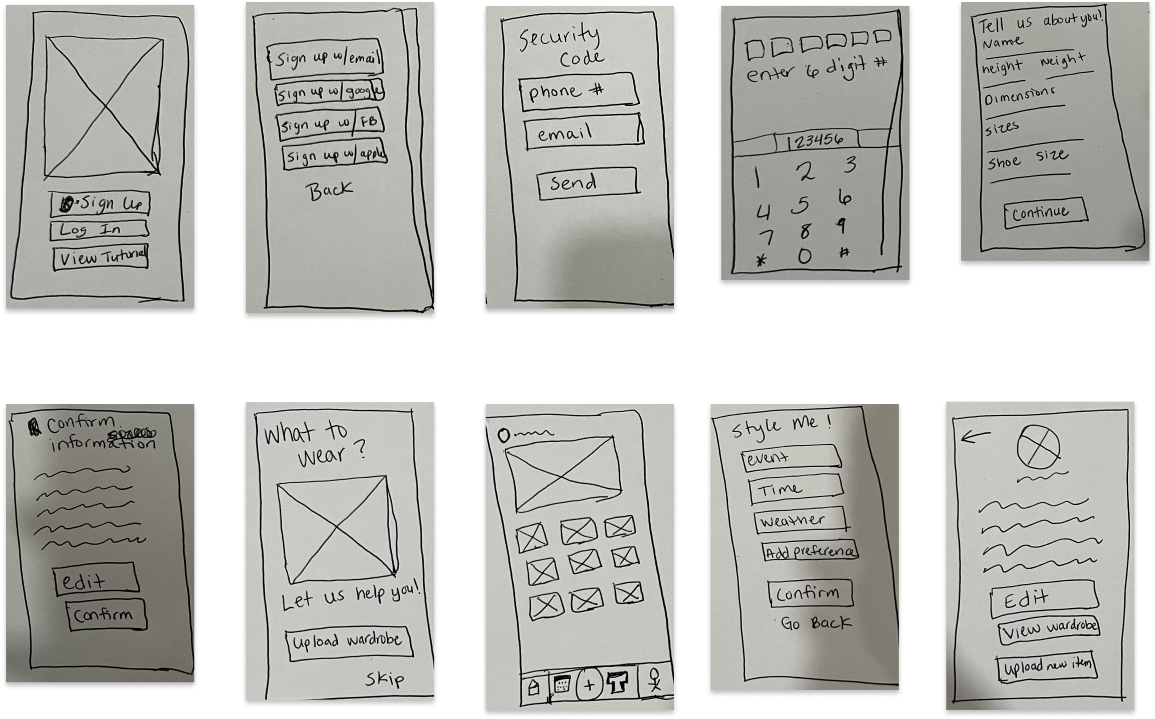 Sign Up
Log In
View Tutorial
Sign up w/email
Sign up w/google
Sign up w/ FB
Sign up w/apple
Back
Security
Code
phone #
email
Send
enter 6 digit #
123456
1 2 3
4 5 6
7 8 9
* 0 #
Tell us about you!
Name
height weight
Dimensions
sizes
Shoe size
Continue
Confirm
information
edit
Confirm
What to
wear?
Let us help you!
Upload wardrobe
Skip
Style Me!
event
Time
Weather
Add preference
Confirm
Go Back
Edit
View wardrobe
Upload new item